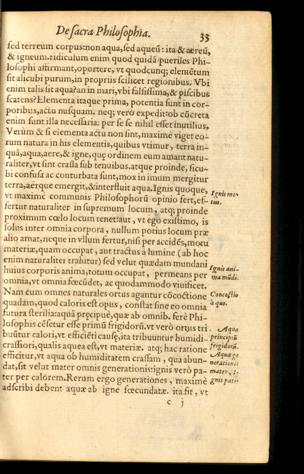 De sacra Philosophia.
33
sed terreum corpus: non aqua, sed aqueū: ita & aereū,
& igneum. ridiculum enim quod quidā pueriles Phi-
losophi affirmant, oportere, vt quodcunq; elemētum
sit alicubi purum, in propriis scilicet regionibus. Vbi
enim talis sit aqua? an in mari, vbi salsissima, & piscibus
scatens? Elementa itaque prima, potentia sunt in cor-
poribus, actu nusquam. neq; vero expeditob cōcreta
enim sunt illa necessaria: per se se nihil esset inutilius,
Verùm & si elementa actu non sint, maximè viget eo-
rum natura in his elementis, quibus vtimur, terra in-
quā, aqua, aere, & igne, quę ordinem eum amant natu-
raliter, vt sint crassa sub tenuibus. atque proinde, sicu-
bi confusa ac conturbata sunt, mox in imum mergitur
terra, aërque emergit, & interfluit aqua. Ignis quoque,
vt maximè communis Philosophorū opinio fert, ef-
fertur naturaliter in supremum locum, atq; proinde
proximum cœlo locum tenet aut, vt ego existimo, is
solus inter omnia corpora, nullum potius locum præ
alio amat, neque in vllum fertur, nisi per accidēs, motu
materiæ, quam occupat, aut tractus à lumine (ab hoc
enim naturaliter trahitur) sed velut quædam mundani
huius corporis anima, totum occupat, permeans per
omnia, vt omnia fœcūdet, ac quodammodo viuificet.
Nam cum omnes naturales ortus agantur cōcoctione
quadam, quod caloris est opus, constat sine eo omnia
futura sterilia aquā pręcipuè, quæ ab omnib. ferè Phi-
losophis cēsetur esse primū frigidorū. vt verò ortus tri
buūtur calori, vt efficiēti causę, ita tribuuntur humidi-
crassiori, qualis aquea est, vt materiæ. atq; hac ratione
efficitur, vt aqua ob humiditatem crassam, qua abun-
dat, sit velut mater omnis generationis: ignis verò pa-
ter per calorem. Rerum ergo generationes, maximè
adscribi debent aquæ ab igne fœcundatæ. ita fit, vt
c j
Ignis mo-
tus.
Ignis ani-
ma mūdi.
Concoctio
Aqua
principiū
frigidorū.
Aqua ge
nerationū
mater, i-
gnis pater